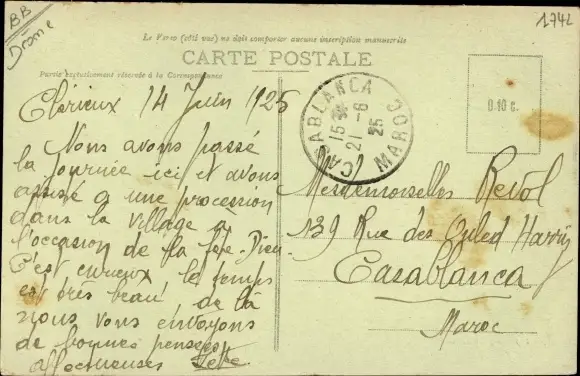 BB
Drôme
1742
Le Verso (côté vue) ne doit comporter aucune inscription manuscrite
CARTE POSTALE
Partie exclusivement réservée à la Correspondance
CASABLANCA
15
21-6
25
MAROC
0.10 c.
Clérieux 14 Juin 1925
Nous avons passé
la journée ici et avons
assisté a une procession
dans la village à
l'occasion de la fête-Dieu
C'est curieux le temps
est très beau de là
nous vous envoyons
de bonnes pensées
affectueuses
Mesdemoiselles Revol
139 Rue des Ouled Harriz
Casablanca
Maroc